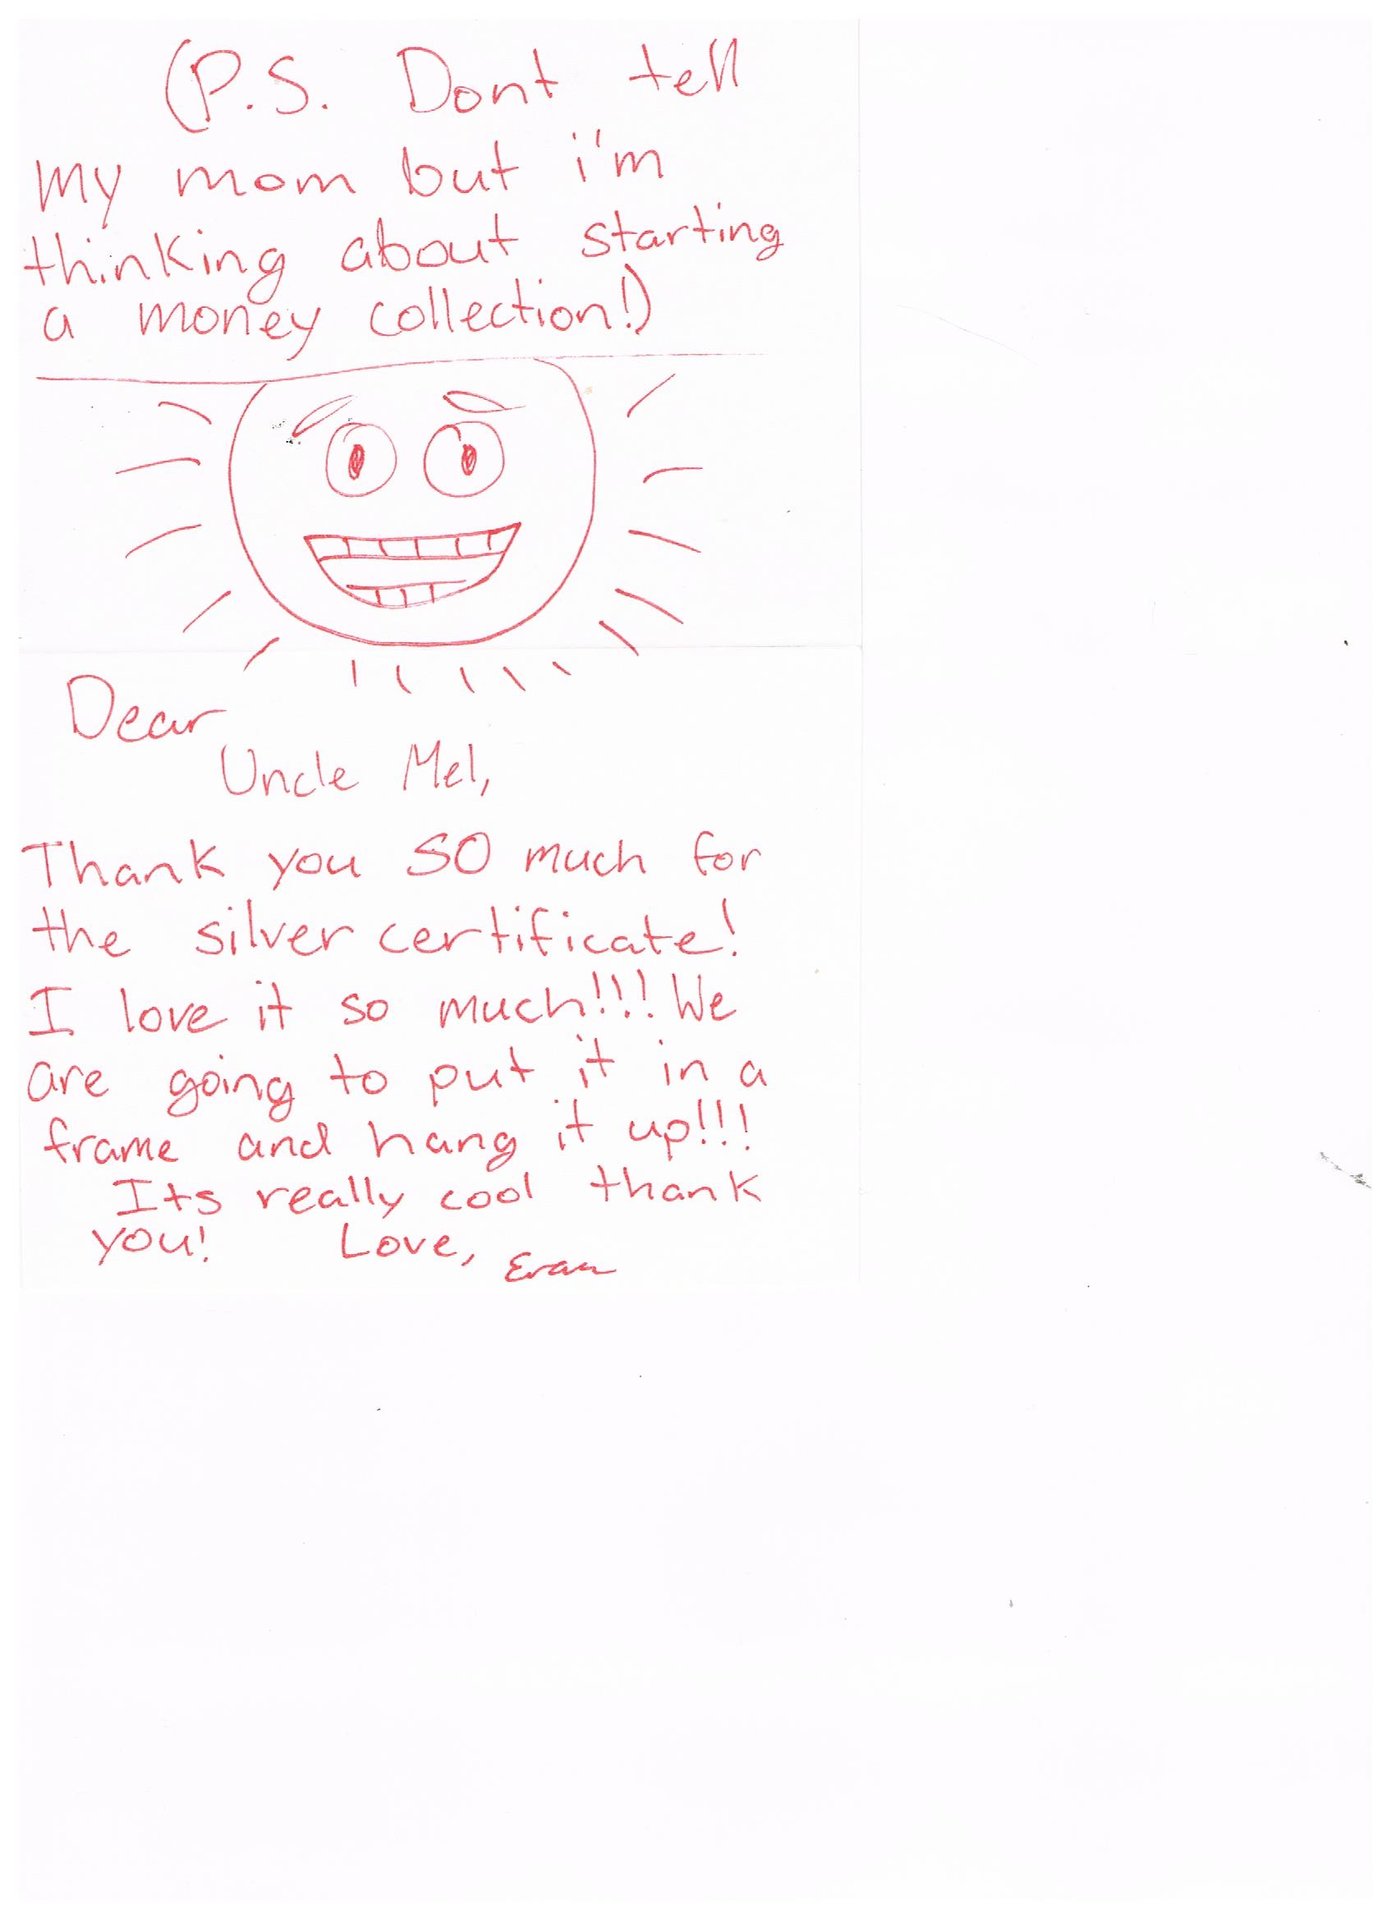 (P.S. Dont tell
my mom but i'm
thinking about starting
a money collection!)
Dear
Uncle Mel,
Thank you SO much for
the silver certificate!
I love it so much!!! We
are going to put it in a
frame and hang it up!!!
Its really cool thank
you! Love, Evan